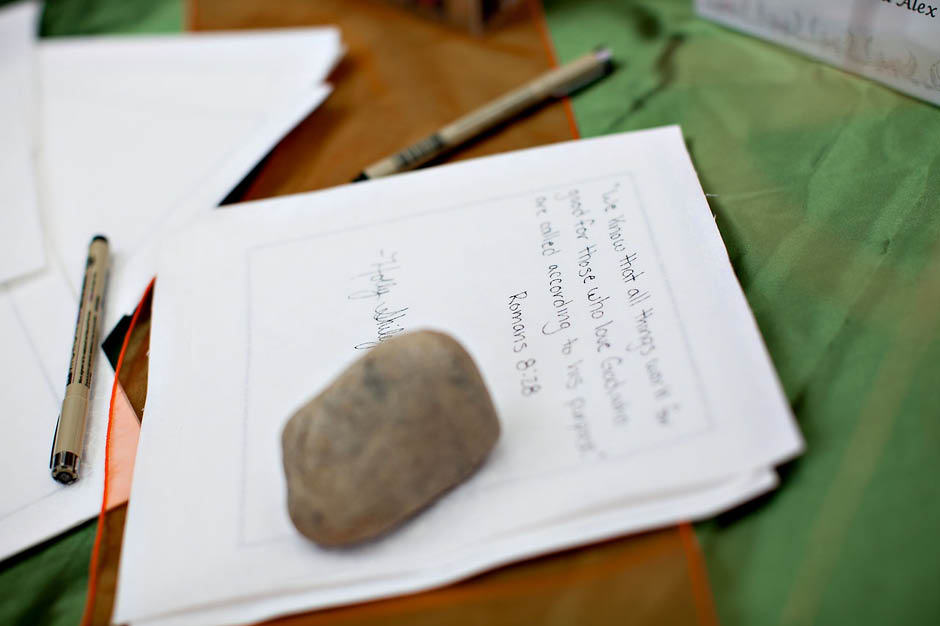 "We know that all things work for
good for those who love God, who
are called according to his purpose."
Romans 8:28
-Holly
Alex